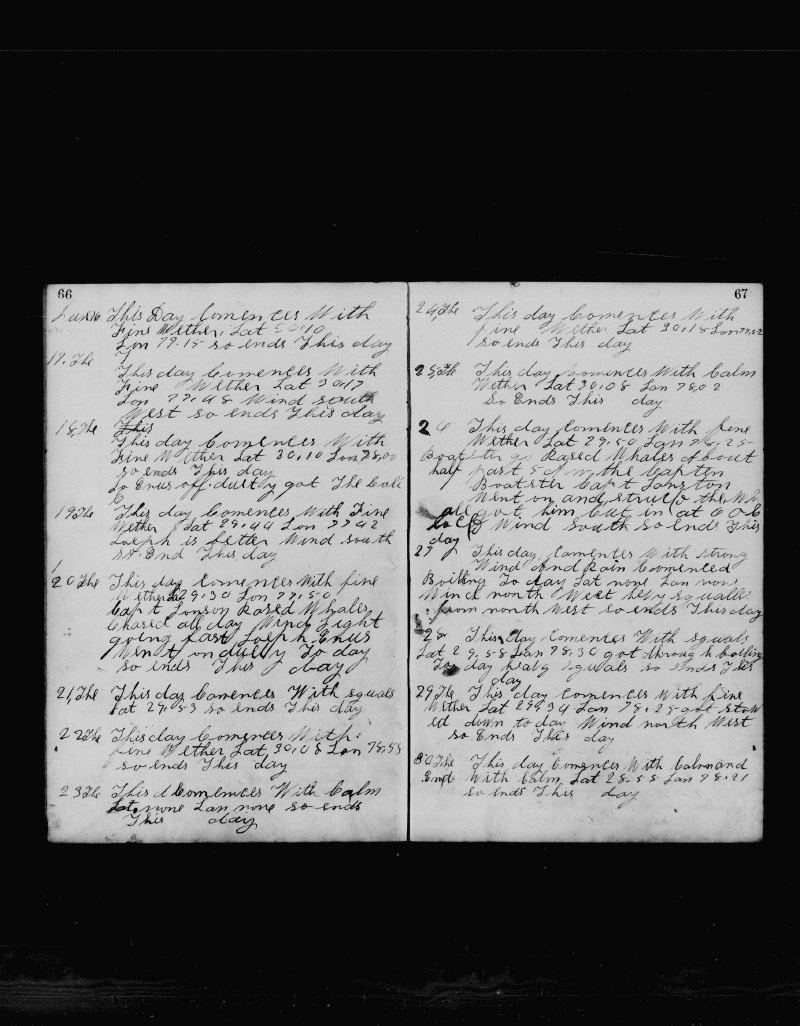 66
This Day Comences With
Fine Wether, Lat 30.10
Lon 77.15 so ends This day
17. The
This day Comences With
Fine Wether Lat 30.17
Lon 77.48 Wind south
West so ends This day
18, The This
This day Comences With
Fine Wether Lat 30.10 Lon 78,00
so ends This day
off duty got The
19 The This day Comences With Fine
Wether Lat 29.44 Lon 77 42
Joseph is better Wind south
so End This day
20 The This day Comences With fine
Wether Lat 29.30 Lon 77.50
Capt Jonson Rased Whales
Chased all day Wind Light
going fast Joseph Enus
Went on dutty To day
so ends This day
21, The This day Comences With squals
Lat 29.53 so ends This day
22 The This day Comences With
fine Wether Lat 30,08 Lon 78,55
so ends This day
23 The This d Comences With Calm
Lat none Lon none so ends
This day
67
24, The This day Comences With
fine Wether Lat 30,18 Lon 77,52
so ends This day
25, The This day Comences With Calm
Wether Lat 30,08 Lon 78,02
So Ends This day
26 This day Comences With fine
Wether Lat 29.50 Lon 25
Rased Whales about
half past 5 the Capten
Capt Jonston
Went on and struck the
all got him cut in at
Wind south so Ends This
day
27 This day Comences With strong
Wind and Rain Comenced
Boilling To day Lat none Lon none
Wind north West hevy squalls
from north West so ends This day
28 This day Comences With squals
Lat 29,58 Lon 78,30 got through boilling
To day heavy squals so ends This
day
29 The This day Comences With fine
Wether Lat 29 34 Lon 78,25 got stow
ed down to day Wind north West
so Ends This day
30 The This day Comences With Calm and
End With Calm Lat 28.55 Lon 78.21
so ends This day